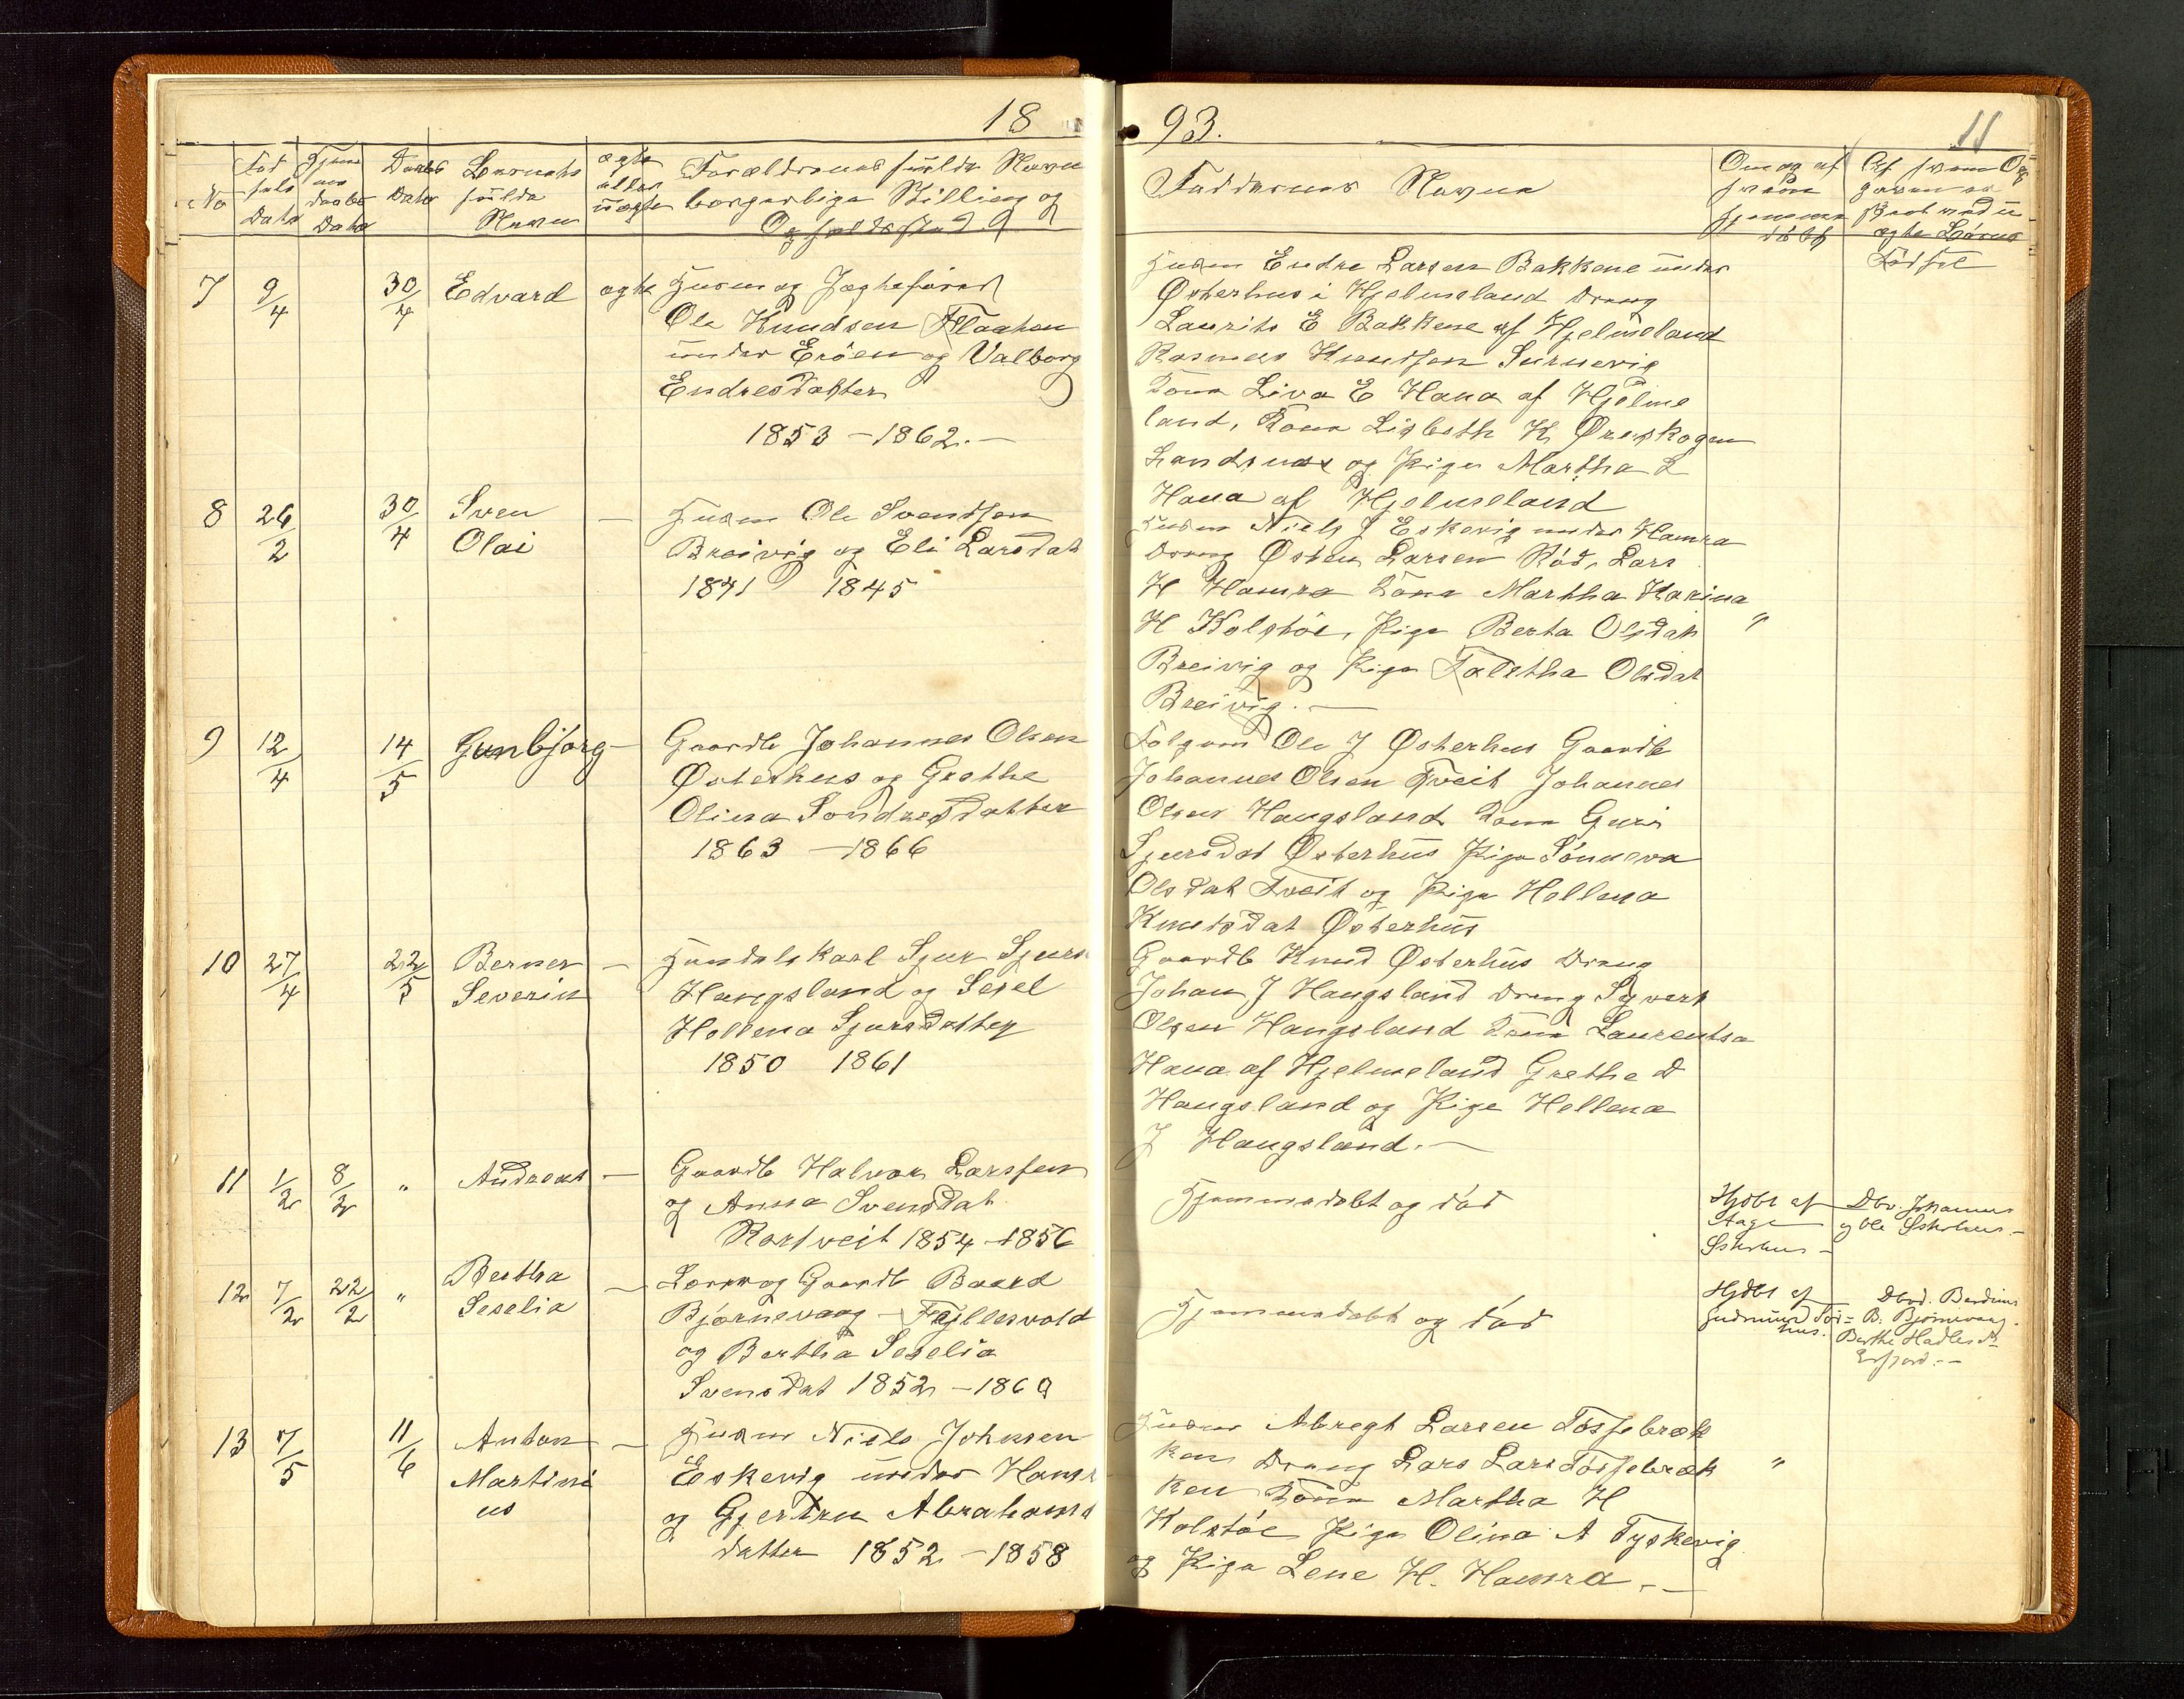 18
93.
11
No
Fød
sels
Dato
Hjem
me
daabs
Dato
Daabs
Dato
Barnets
fulde
Navn
ægte
eller
uægte
Forældrenes fulde Navn
borgerlige Stilling og
Opholdssted
Faddernes Navne
Om og af
hvem
hjemme
døbt
Af hvem Op
gaven er
skeet ved u-
ægte Børns
Fødsel
7
9/4
30/4
Edvard
ægte
Husm og Jægtefører
Ole Knudsen Flaaten
under Erøen og Valborg
Endresdatter
1853 - 1862. -
Husm Endre Larsen Bakkene under
Østerhus i Hjelmeland Dreng
Laurits E Bakkene af Hjelmeland
Rasmus Knudsen Surnevig
Kone Liva E Hana af Hjelme
land, Kone Lisbeth K Øreskogen
Landsnes og Pige Martha L
Hana af Hjelmeland
8
26/2
30/4
Sven
Olai
-
Husm Ole Svendsen
Breivig og Eli Larsdat
1841 1845
Husm Niels J Eskevig under Hamra
Dreng Østen Larsen Rød, Lars
H Hamra Kone Martha Karina
H Kolstöe, Pige Berta Olsdat
Breivig og Pige Taletha Olsdat
Breivig. -
"
9
12/4
14/5
Gunbjörg -
Gaardb Johannes Olsen
Østerhus og Grethe
Olina Sondresdatter
1863 - 1866
Folgem Ole J Østerhus Gaardb
Johannes Olsen Tveit Johannes
Olsen Haugsland Kone Guri
Sjursdat Østerhus Pige Sönneva
Olsdat Tveit og Pige Hellena
Knutsdat Østerhus
10
27/4
22/5
Berner
Severin
-
Handelskarl Sjur Sjurs
Haugsland og Sesel
Hellena Sjursdatter
1850 1861
Gaardb Knud Østerhus Dreng
Johan J Haugsland Dreng Syvert
Olsen Haugsland Kone Laurentsa
Hana af Hjelmeland Grethe D
Haugsland og Pige Hellena
J Haugsland. -
11
1/2
8/2
"
Andreas
-
Gaardb Halvor Larsen
og Anna Svensdat
Rortveit 1854 - 1856
Hjemmedøbt og død
Hjdbt af
Aage
Østerhus -
Dbv. Johannes
og Ole Østerhus. -
12
7/2
22/2
"
Bertha
Seselia
-
Lærer og Gaardb Baard
Bjørnevaag - Fjellesvold
og Bertha Seselia
Svensdat 1852 - 1860
Hjemmedøbt og død
Hjdbt af
Gudmund Tøi=
hus.
Dbvd. Bardinus
B. Bjørnevaag.
Berthe Hadlesdt
Erfjord. -
13
7/5
11/6
Anton
Martini
us
-
Husm Niels Johnsen
Eskevig under Hamr
og Gjertru Abrahams
datter 1852 - 1858
Husm Abregt Larsen Tossebræk
ken Dreng Lars Lars Tossebræk
ken Kone Martha H
Kolstöe Pige Olina A Tyskevig
og Pige Lene H. Hamra. -
"